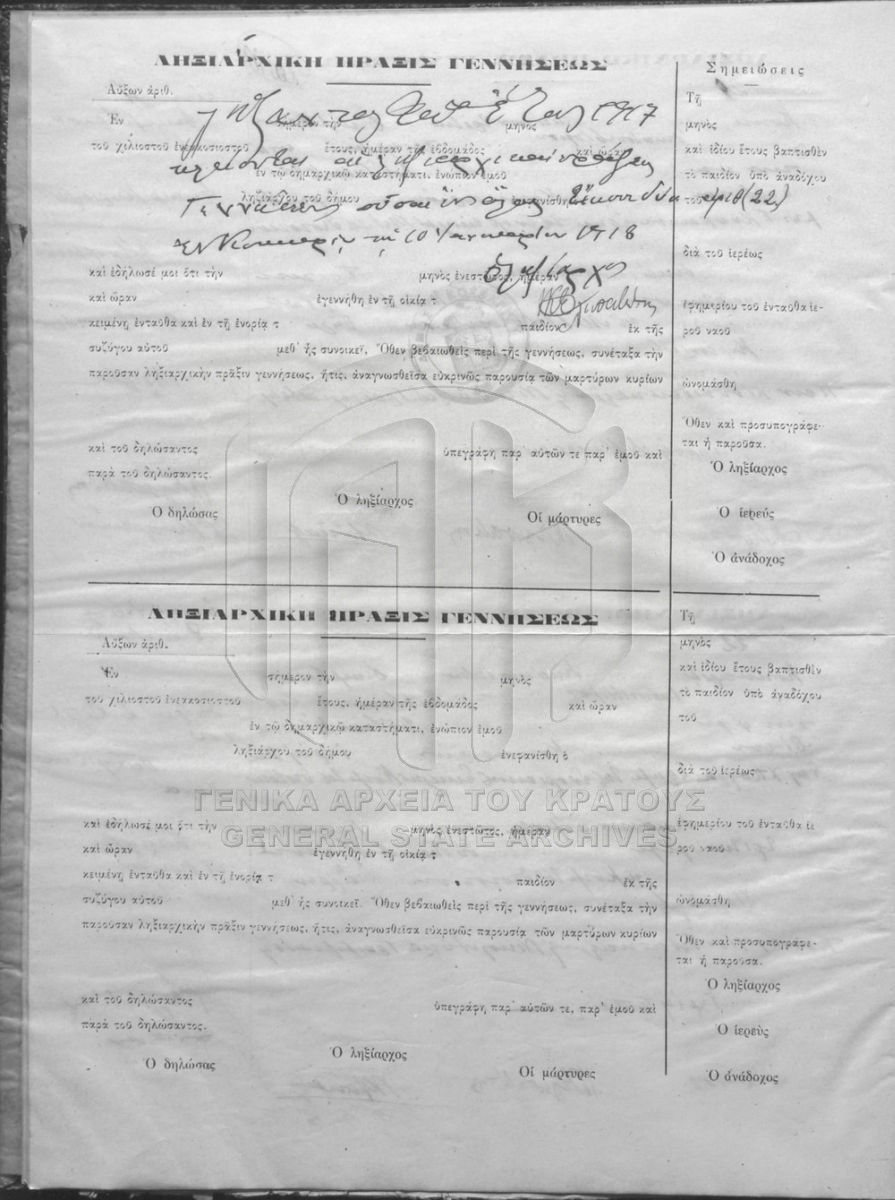 ΛΗΞΙΑΡΧΙΚΗ ΠΡΑΞΙΣ ΓΕΝΝΗΣΕΩΣ
Αὔξων ἀριθ.
Ἐν σήμερον τὴν μηνὸς
1917
τοῦ χιλιοστοῦ ἐνεακοσιοστοῦ ἔτους, ἡμέραν τῆς ἑβδομάδος καὶ ὥραν
ἐν τῷ δημαρχικῷ καταστήματι, ἐνώπιον ἐμοῦ
ληξιάρχου τοῦ δήμου ἐνεφανίσθη
Γεννήσεως οὖσαι ἐν ὅλῳ Εἴκοσι δύο ἀριθ (22)
10 Ἰανουαρίου 1918
Ὁ Ληξίαρχος
καὶ ἐδήλωσέ μοι ὅτι τὴν μηνὸς ἐνεστῶτος, ἡμέραν
καὶ ὥραν ἐγεννήθη ἐν τῇ οἰκίᾳ τ
κειμένῃ ἐνταῦθα καὶ ἐν τῇ ἐνορίᾳ τ παιδίον ἐκ τῆς
συζύγου αὐτοῦ μεθ᾽ ἧς συνοικεῖ. Ὅθεν βεβαιωθεὶς περὶ τῆς γεννήσεως, συνέταξα τὴν
παροῦσαν ληξιαρχικὴν πρᾶξιν γεννήσεως, ἥτις, ἀναγνωσθεῖσα εὐκρινῶς παρουσίᾳ τῶν μαρτύρων κυρίων
καὶ τοῦ δηλώσαντος ὑπεγράφη παρ᾽ αὐτῶν τε παρ᾽ ἐμοῦ καὶ
παρὰ τοῦ δηλώσαντος.
Ὁ δηλώσας Ὁ ληξίαρχος Οἱ μάρτυρες
Σημειώσεις
Τῇ
μηνὸς
καὶ ἰδίου ἔτους βαπτισθὲν
τὸ παιδίον ὑπὸ ἀναδόχου
τοῦ
διὰ τοῦ ἱερέως
ἐφημερίου τοῦ ἐνταῦθα ἱε-
ροῦ ναοῦ
ὠνομάσθη
Ὅθεν καὶ προσυπογράφε-
ται ἡ παροῦσα.
Ὁ ληξίαρχος
Ὁ ἱερεύς
Ὁ ἀνάδοχος
ΛΗΞΙΑΡΧΙΚΗ ΠΡΑΞΙΣ ΓΕΝΝΗΣΕΩΣ
Αὔξων ἀριθ.
Ἐν σήμερον τὴν μηνὸς
τοῦ χιλιοστοῦ ἐνεακοσιοστοῦ ἔτους, ἡμέραν τῆς ἑβδομάδος καὶ ὥραν
ἐν τῷ δημαρχικῷ καταστήματι, ἐνώπιον ἐμοῦ
ληξιάρχου τοῦ δήμου ἐνεφανίσθη ὁ
ΓΕΝΙΚΑ ΑΡΧΕΙΑ ΤΟΥ ΚΡΑΤΟΥΣ
GENERAL STATE ARCHIVES
καὶ ἐδήλωσέ μοι ὅτι τὴν μηνὸς ἐνεστῶτος, ἡμέραν
καὶ ὥραν ἐγεννήθη ἐν τῇ οἰκίᾳ τ
κειμένῃ ἐνταῦθα καὶ ἐν τῇ ἐνορίᾳ τ παιδίον ἐκ τῆς
συζύγου αὐτοῦ μεθ᾽ ἧς συνοικεῖ. Ὅθεν βεβαιωθεὶς περὶ τῆς γεννήσεως, συνέταξα τὴν
παροῦσαν ληξιαρχικὴν πρᾶξιν γεννήσεως, ἥτις, ἀναγνωσθεῖσα εὐκρινῶς παρουσίᾳ τῶν μαρτύρων κυρίων
καὶ τοῦ δηλώσαντος ὑπεγράφη παρ᾽ αὐτῶν τε, παρ᾽ ἐμοῦ καὶ
παρὰ τοῦ δηλώσαντος.
Ὁ δηλώσας Ὁ ληξίαρχος Οἱ μάρτυρες
Τῇ
μηνὸς
καὶ ἰδίου ἔτους βαπτισθὲν
τὸ παιδίον ὑπὸ ἀναδόχου
τοῦ
διὰ τοῦ ἱερέως
ἐφημερίου τοῦ ἐνταῦθα ἱε
ροῦ ναοῦ
ὠνομάσθη
Ὅθεν καὶ προσυπογράφε-
ται ἡ παροῦσα.
Ὁ ληξίαρχος
Ὁ ἱερεὺς
Ὁ ἀνάδοχος